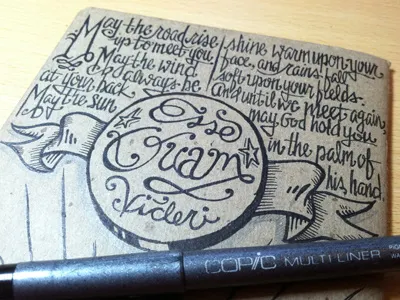 May the road rise
up to meet you
May the wind
always be
at your back
May the sun
shine warm upon your
face, and rains fall
soft upon your fields.
and until we meet again,
may God hold you
in the palm of
his hand.
Esse
Quam
Videri
COPIC MULTI LINER